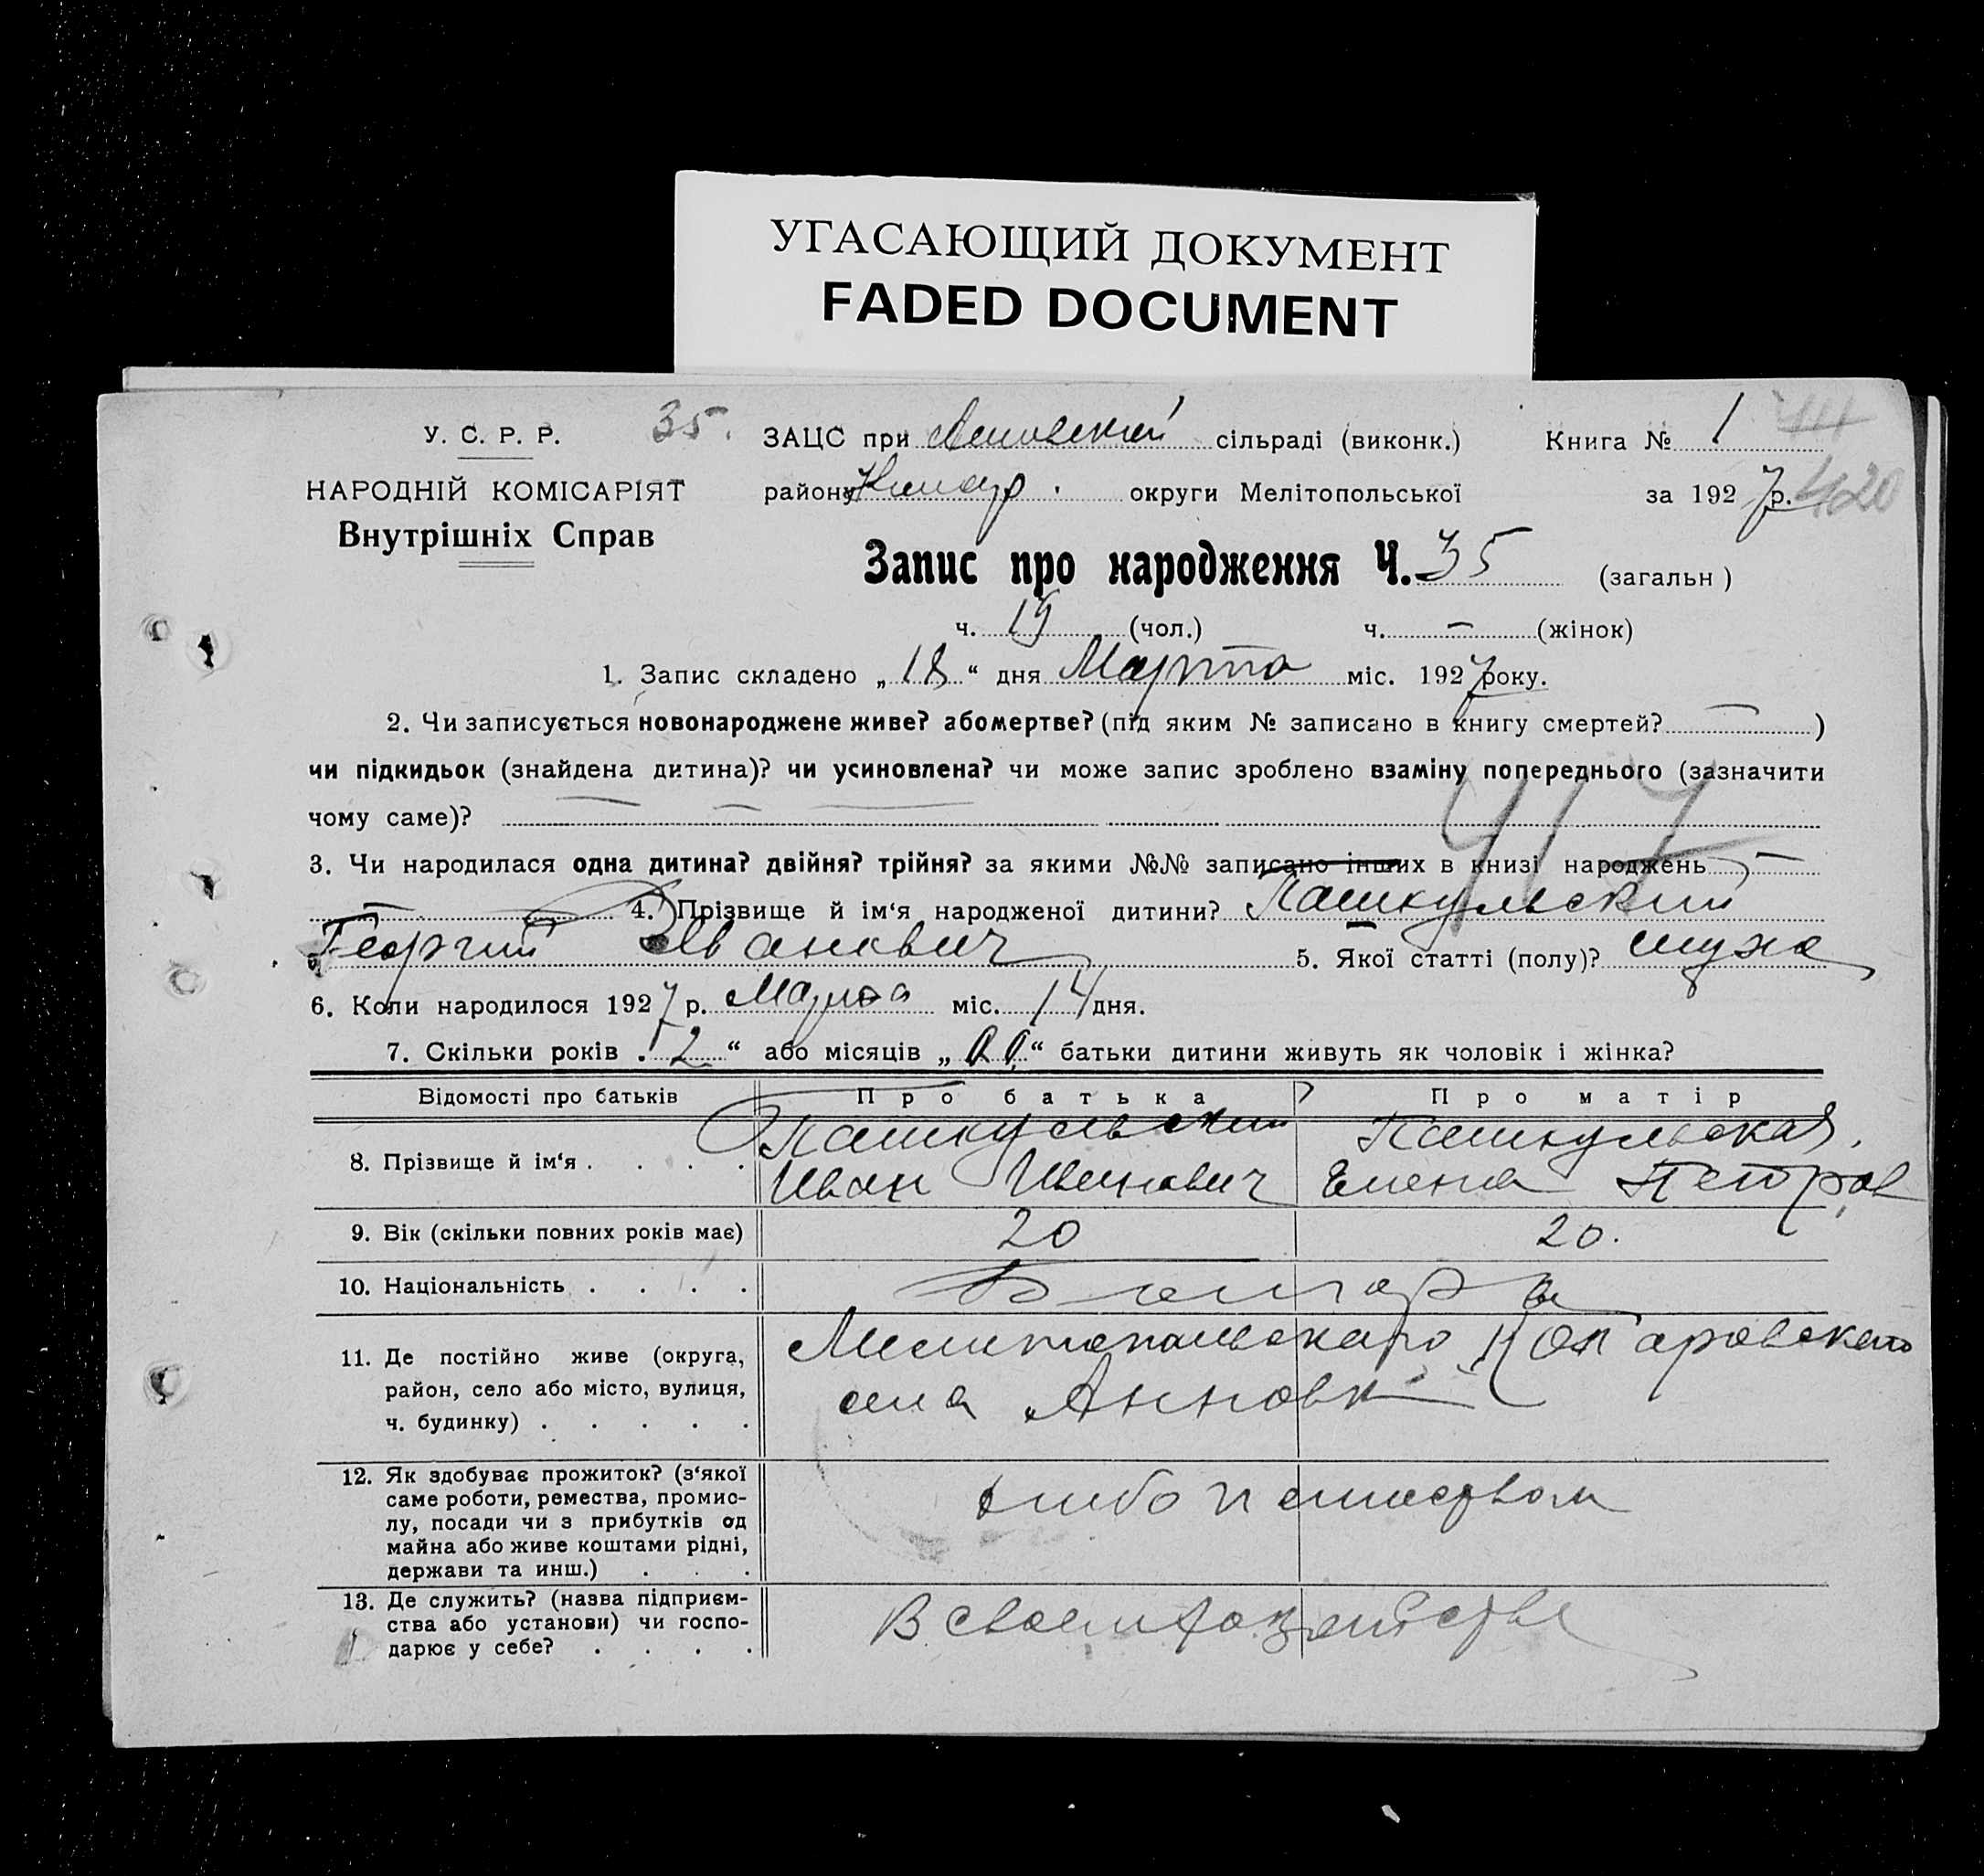 УГАСАЮЩИЙ ДОКУМЕНТ
FADED DOCUMENT
У. С. Р. Р. 35. ЗАЦС при сільраді (виконк.) Книга № 1
НАРОДНІЙ КОМІСАРІЯТ району округи Мелітопольської за 1927 р. 420
Внутрішніх Справ
Запис про народження Ч. 35 (загальн )
ч. 19 (чол.) ч. — (жінок)
1. Запис складено „18“ дня Марта міс. 1927 року.
2. Чи записується новонароджене живе? або мертве? (під яким № записано в книгу смертей? — )
чи підкидьок (знайдена дитина)? чи усиновлена? чи може запис зроблено взаміну попереднього (зазначити
чому саме)? — — —
417
3. Чи народилася одна дитина? двійня? трійня? за якими №№ записано інших в книзі народжень —
— 4. Прізвище й ім‘я народженої дитини? Пашкульский
Георгий Иванович 5. Якої статті (полу)? мужс
6. Коли народилося 1927 р. Марта міс. 14 дня.
7. Скільки років „2“ або місяців „ “ батьки дитини живуть як чоловік і жінка?
Відомості про батьків Про батька Про матір
8. Прізвище й ім‘я . . . . Пашкульский Пашкульская
Иван Иванович Елена Петров
9. Вік (скільки повних років має) 20 20.
10. Національність . . . . Болгары
11. Де постійно живе (округа, район, село або місто, вулиця, ч. будинку) . . . . . Мелитопольскаго
села Анновк
12. Як здобуває прожиток? (з‘якої саме роботи, ремества, промислу, посади чи з прибутків од майна або живе коштами рідні, держави та инш.) . . . хлебопашеством
13. Де служить? (назва підприємства або установи) чи господарює у себе? . . . . В своем хозяйстве